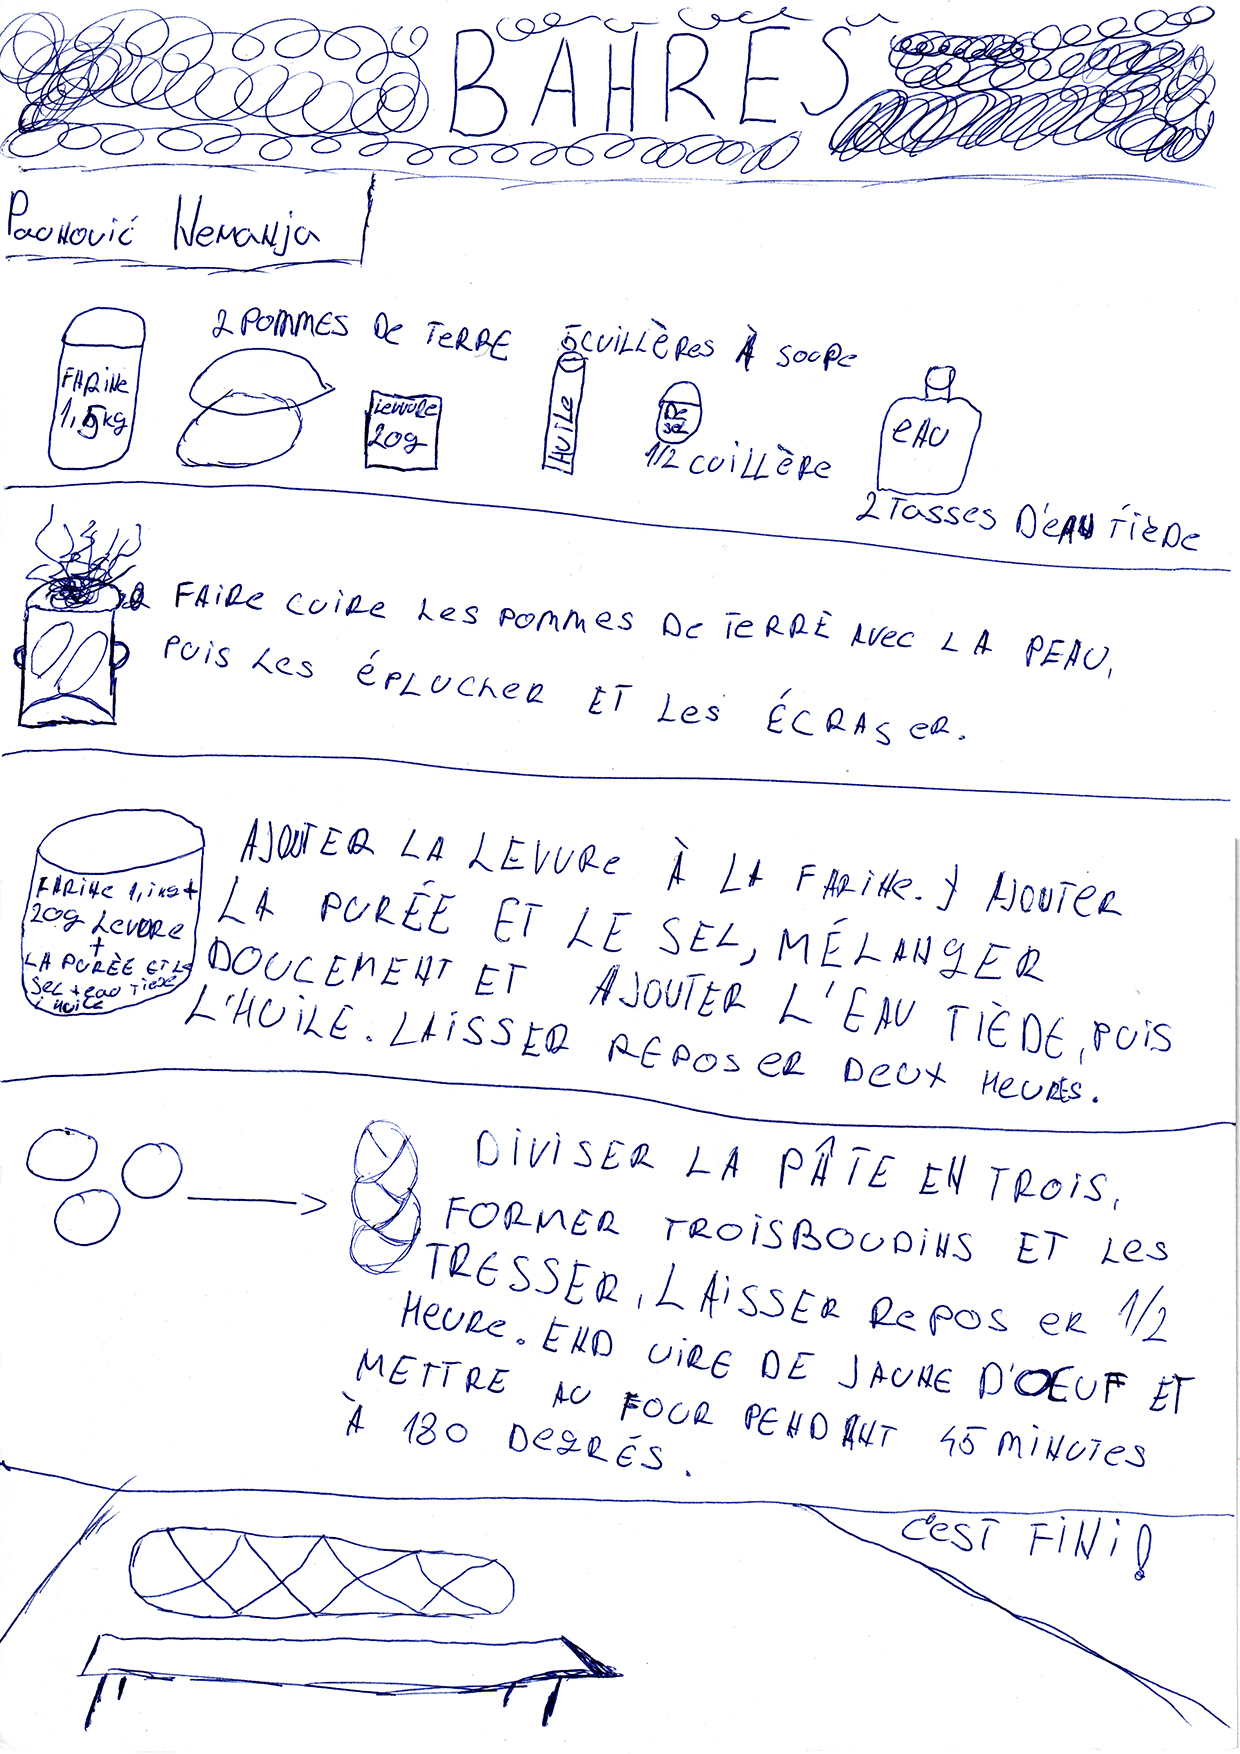 BAHRES
Paunović Nemanja
2 POMMES DE TERRE 5 CUILLÈRES À SOUPE
FARINE
1,5 kg
LEVURE
20g
HUILE
DE
SEL
1/2 CUILLÈRE
EAU
2 TASSES D'EAU TIÈDE
FAIRE CUIRE LES POMMES DE TERRE AVEC LA PEAU,
PUIS LES ÉPLUCHER ET LES ÉCRASER.
FARINE
20g LEVURE
+
LA PURÉE ET LE
SEL + EAU TIÈDE
HUILE
AJOUTER LA LEVURE À LA FARINE. Y AJOUTER
LA PURÉE ET LE SEL, MÉLANGER
DOUCEMENT ET AJOUTER L'EAU TIÈDE, PUIS
L'HUILE. LAISSER REPOSER DEUX HEURES.
DIVISER LA PÂTE EN TROIS,
FORMER TROIS BOUDINS ET LES
TRESSER, LAISSER REPOSER 1/2
HEURE. END UIRE DE JAUNE D'OEUF ET
METTRE AU FOUR PENDANT 45 MINUTES
À 180 DEGRÉS.
C'EST FINI!